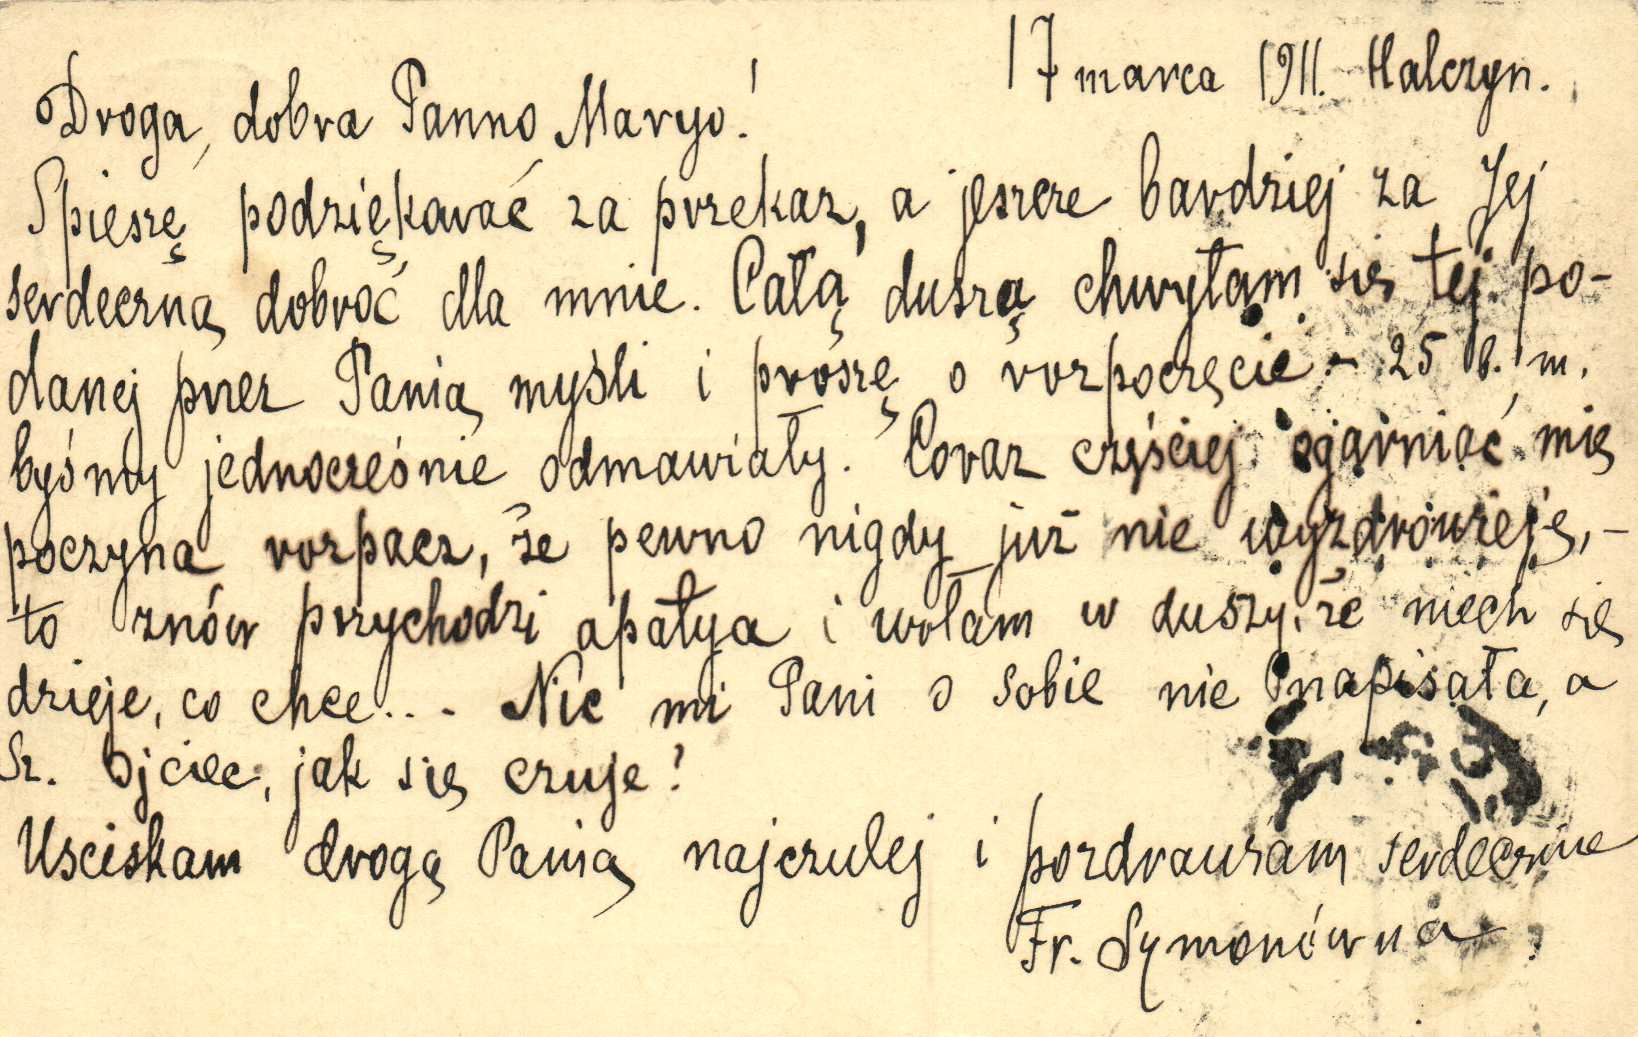 17 marca 1911. Halczyn.
Droga, dobra Panno Maryo!
Spieszę podziękować za przekaz, a jeszcze bardziej za Jej
serdeczną dobroć dla mnie. Całą duszą chwytam się tej po-
danej przez Panią myśli i proszę o rozpoczęcie - 25 b. m.
byśmy jednocześnie odmawiały. Coraz częściej ogarniać mię
poczyna rozpacz, że pewno nigdy już nie wyzdrowieję, -
to znów przychodzi apatya i wołam w duszy, że niech się
dzieje, co chce... - Nic mi Pani o sobie nie napisała, a
Sz. Ojciec, jak się czuje?
Usciskam drogą Panią najczulej i pozdrawiam serdecznie
Fr. Symonówna.